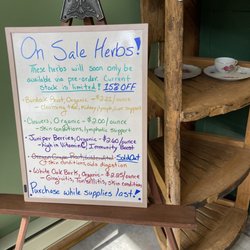 On Sale Herbs!
These herbs will soon only be
available via pre-order. Current
stock is limited! 15% OFF
Burdock Root, Organic - $2.21/ounce
- Cleansing, heal, kidney/liver support
Clovers, Organic - $2.00/ounce
- skin conditions, lymphatic support
Juniper Berries, Organic - $2.60/ounce
- High in Vitamin C, Immunity Boost
Oregon Grape Root, Sold Out
- skin conditions, aids digestion
White Oak Bark, Organic - $2.05/ounce
- Gingivitis, Tonsillitis, skin condition
Purchase while supplies last!